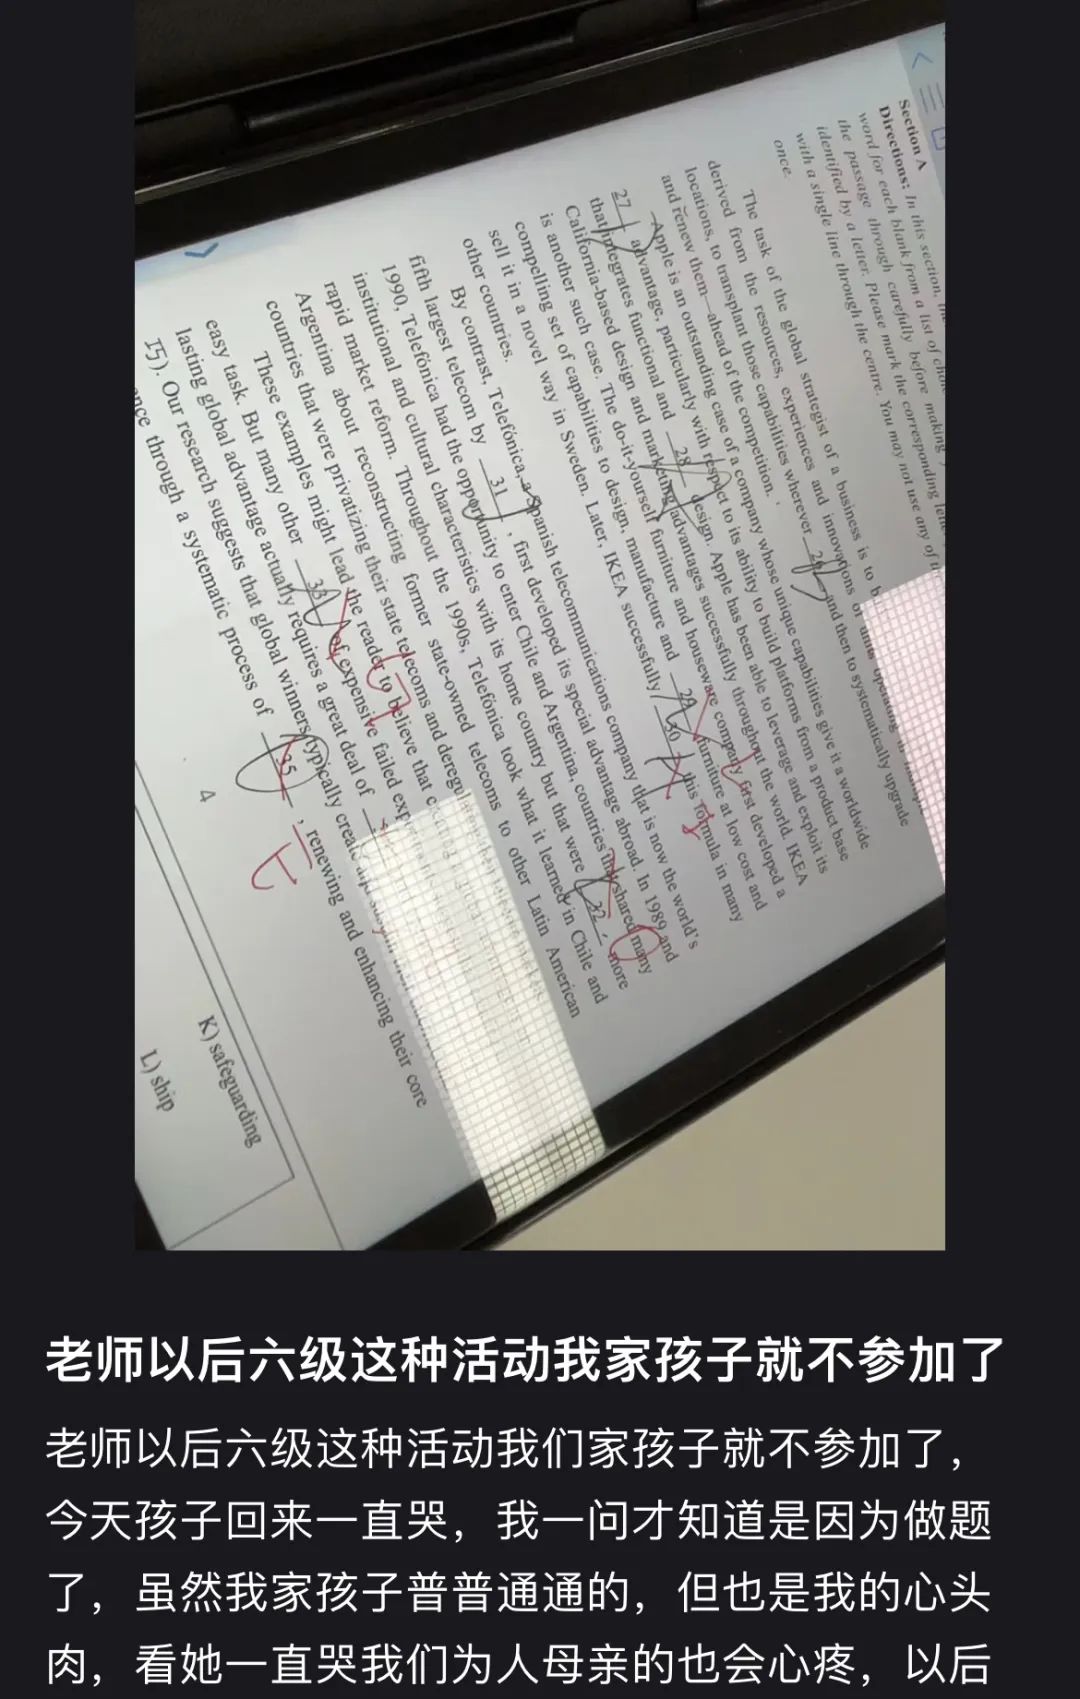 Section A
Directions: In this section,
word for each blank from a list of
the passage through carefully before making
identified by a letter. Please mark the corresponding
with a single line through the centre. You may not use any of
once.
The task of the global strategist of a business is to
derived from the resources, experiences and innovations of
locations, to transplant those capabilities wherever 26 and then to systematically upgrade
and renew them—ahead of the competition.
Apple is an outstanding case of a company whose unique capabilities give it a worldwide
27 advantage, particularly with respect to its ability to build platforms from a product base
that integrates functional and 28 design. Apple has been able to leverage and exploit its
California-based design and marketing advantages successfully throughout the world. IKEA
is another such case. The do-it-yourself furniture and houseware company first developed a
compelling set of capabilities to design, manufacture and 29 furniture at low cost and
sell it in a novel way in Sweden. Later, IKEA successfully 30 this formula in many
other countries.
By contrast, Telefónica, a Spanish telecommunications company that is now the world's
fifth largest telecom by 31, first developed its special advantage abroad. In 1989 and
1990, Telefónica had the opportunity to enter Chile and Argentina, countries that shared many
institutional and cultural characteristics with its home country but that were 32 more
rapid market reform. Throughout the 1990s, Telefónica took what it learned in Chile and
Argentina about reconstructing former state-owned telecoms to other Latin American
countries that were privatizing their state telecoms and
These examples might lead the reader to believe that
easy task. But many other 33 of expensive failed
lasting global advantage actually requires a great deal of
15). Our research suggests that global winners typically
through a systematic process of 35, renewing and enhancing their core
4
K) safeguarding
L) ship
老师以后六级这种活动我家孩子就不参加了
老师以后六级这种活动我们家孩子就不参加了，
今天孩子回来一直哭，我一问才知道是因为做题
了，虽然我家孩子普普通通的，但也是我的心头
肉，看她一直哭我们为人母亲的也会心疼，以后